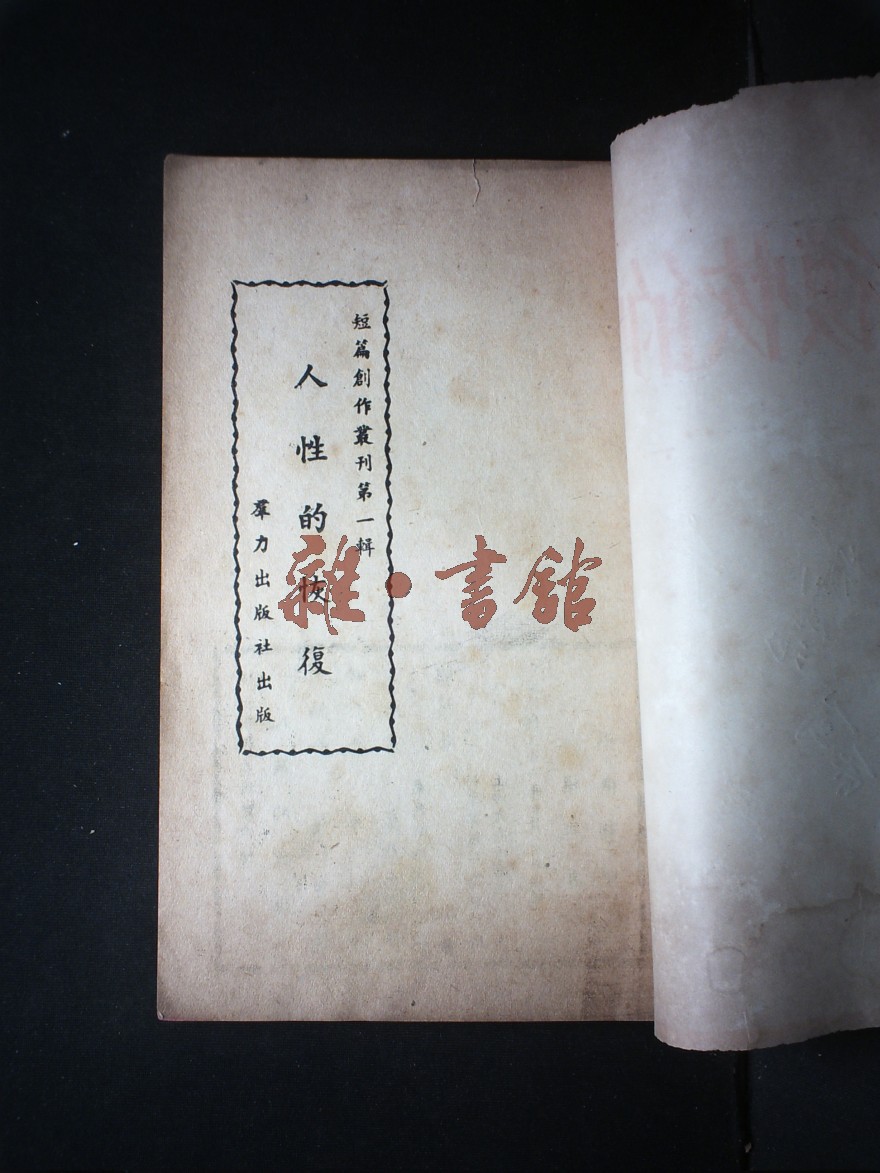 短篇創作叢刊第一輯
人性的恢復
羣力出版社出版
雜·書館